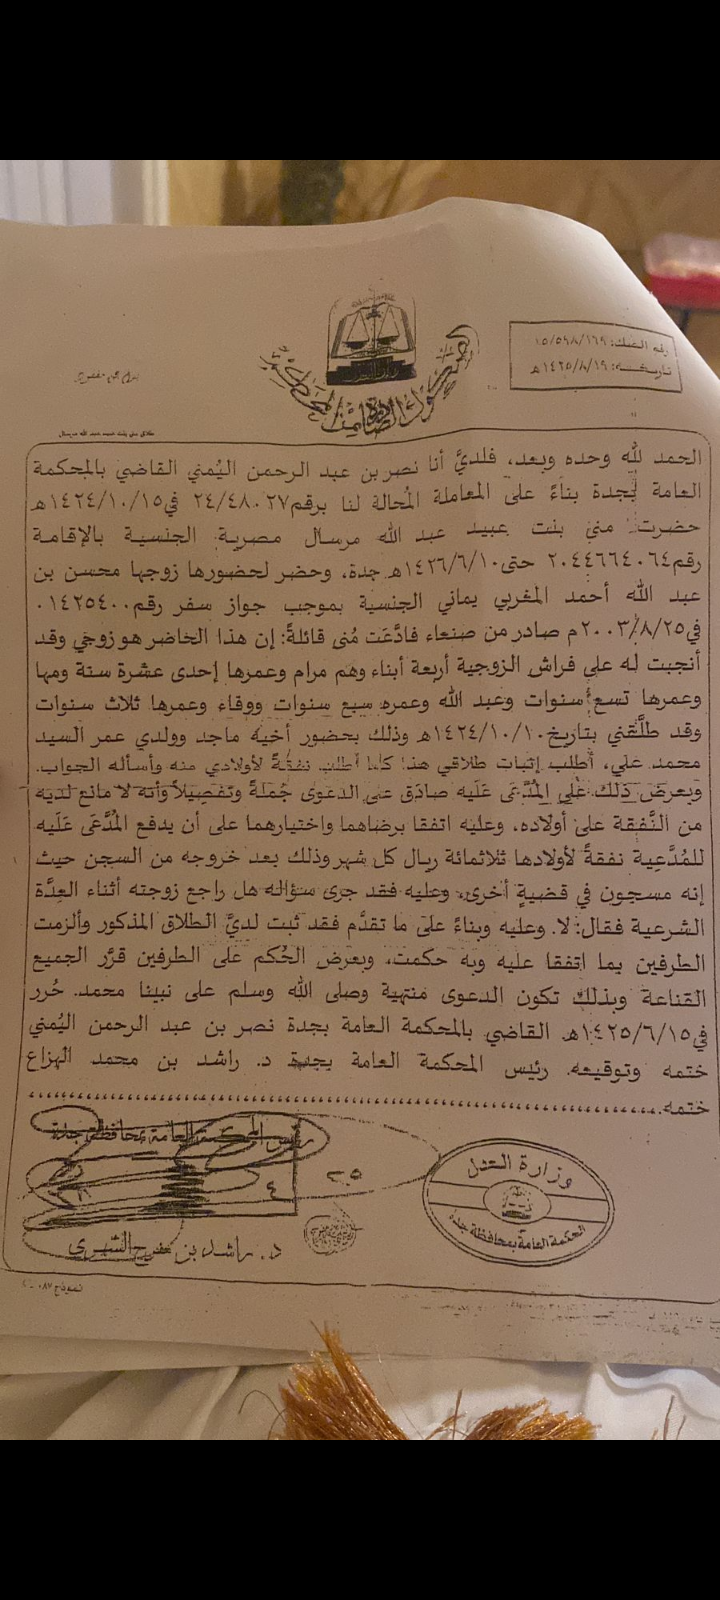 رقم الصك: ١٥/٥٩٨/١٦٩
تاريخـــه: ١٤٢٥/٨/١٩هـ
وزارة العدل
الحمد لله وحده وبعد، فلديَّ أنا نصر بن عبد الرحمن اليُمني القاضي بالمحكمة
العامة بجدة بناءً على المعاملة المُحالة لنا برقم ٢٤/٤٨٠٢٧ في ١٤٢٤/١٠/١٥هـ
حضرت منى بنت عبيد عبد الله مرسال مصرية الجنسية بالإقامة
رقم ٢٠٤٤٦٦٤٠٦٤ حتى ١٤٢٦/٦/١٠هـ جدة، وحضر لحضورها زوجها محسن بن
عبد الله أحمد المغربي يماني الجنسية بموجب جواز سفر رقم ٠١٤٢٥٤٠٠
في ٢٠٠٣/٨/٢٥م صادر من صنعاء فادَّعَت مُنى قائلةً: إن هذا الحاضر هو زوجي وقد
أنجبت له على فراش الزوجية أربعة أبناء وهم مرام وعمرها إحدى عشرة سنة ومها
وعمرها تسع سنوات وعبد الله وعمره سبع سنوات ووفاء وعمرها ثلاث سنوات
وقد طلَّقني بتاريخ ١٤٢٤/١٠/١٠هـ وذلك بحضور أخيه ماجد وولدي عمر السيد
محمد علي، أطلب إثبات طلاقي هذا كما أطلب نفقةً لأولادي منه وأسأله الجواب.
وبعرض ذلك على المُدَّعَى عَلَيه صادَق على الدعوى جُملةً وتفصيلاً وأنه لا مانع لديه
من النَّفقة على أولاده، وعليه اتفقا برضاهما واختيارهما على أن يدفع المُدَّعَى عَلَيه
للمُدَّعِية نفقةً لأولادها ثلاثمائة ريال كل شهر وذلك بعد خروجه من السجن حيث
إنه مسجون في قضيةٍ أخرى، وعليه فقد جرى سؤاله هل راجع زوجته أثناء العِدَّة
الشرعية فقال: لا. وعليه وبناءً على ما تقدَّم فقد ثبت لديَّ الطلاق المذكور وألزمت
الطرفين بما اتفقا عليه وبه حكمت، وبعرض الحُكم على الطرفين قرَّر الجميع
القناعة وبذلك تكون الدعوى منتهية وصلى الله وسلم على نبينا محمد. حُرر
في ١٤٢٥/٦/١٥هـ. القاضي بالمحكمة العامة بجدة نصر بن عبد الرحمن اليُمني
ختمه وتوقيعه. رئيس المحكمة العامة بجدة د. راشد بن محمد الهزاع
ختمه.
رئيس المحكمة العامة بمحافظة جدة
٢٥
٤
وزارة العدل
المحكمة العامة بمحافظة جدة
د. راشد بن مفرح الشهري